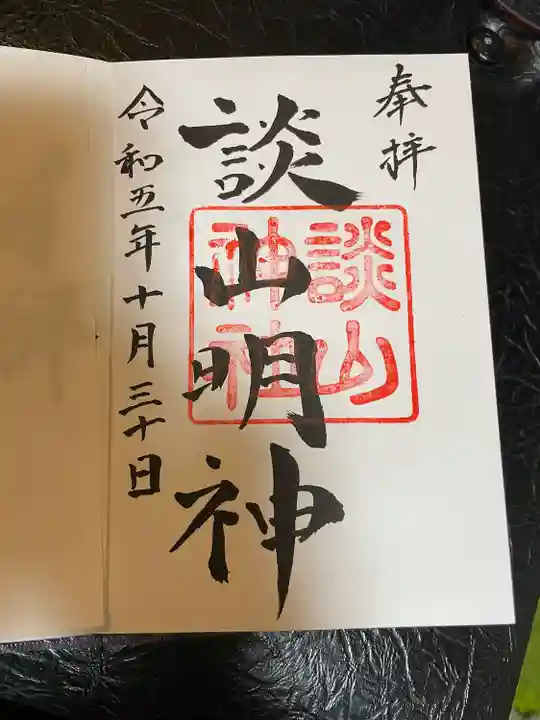 奉拝
談山明神
談山神社
令和五年十月三十日